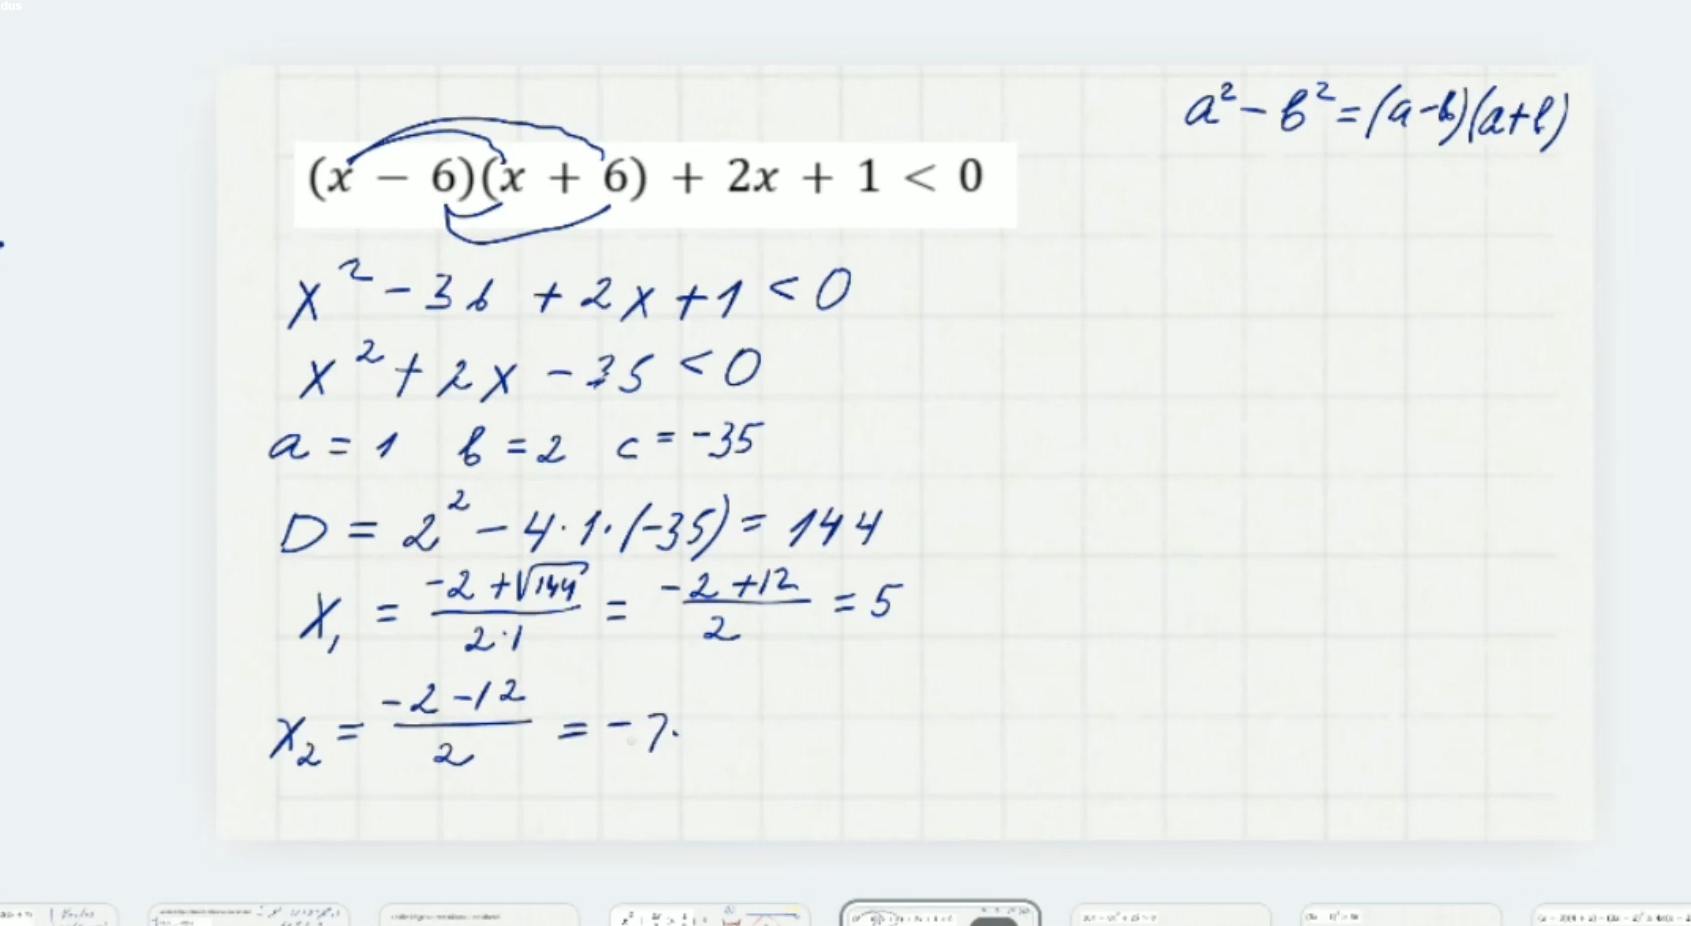 dus
a² - b² = (a-b)(a+b)
(x − 6)(x + 6) + 2x + 1 < 0
x² - 36 + 2x + 1 < 0
x² + 2x - 35 < 0
a = 1 b = 2 c = -35
D = 2² - 4·1·(-35) = 144
x₁ = (-2 + √144)/(2·1) = (-2 + 12)/2 = 5
x₂ = (-2 - 12)/2 = -7.